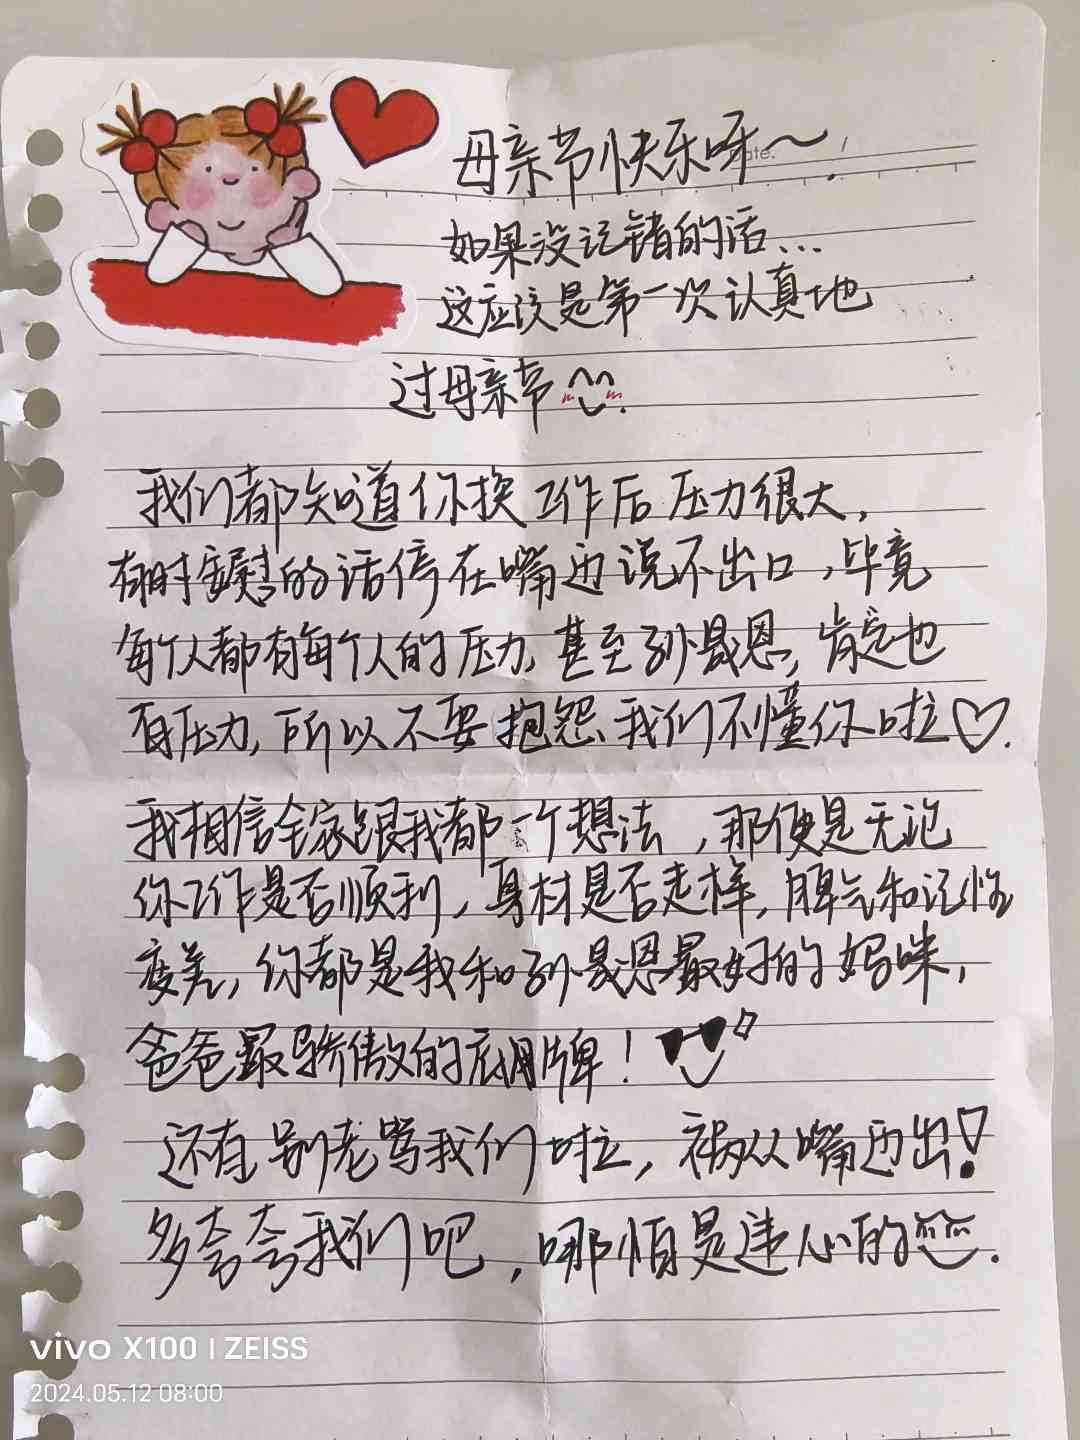 母亲节快乐呀～.
Date.
如果没记错的话...
这应该是第一次认真地
过母亲节
我们都知道你换工作后压力很大，
有时安慰的话停在嘴边说不出口，毕竟
每个人都有每个人的压力，甚至孙晟恩，肯定也
有压力，所以不要抱怨我们不懂你啦♡.
我相信全家跟我都一个想法，那便是无论
你工作是否顺利，身材是否走样，脾气和记性
变差，你都是我和孙晟恩最好的妈咪，
爸爸最骄傲的底牌！
还有别老骂我们啦，祸从嘴边出！
多夸夸我们吧，哪怕是违心的.
vivo X100 | ZEISS
2024.05.12 08:00